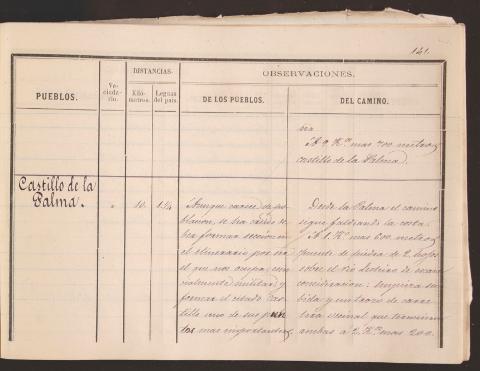 141.
PUEBLOS.
Ve-
cinda-
rio.
DISTANCIAS.
Kiló-
metros.
Leguas
del país.
OBSERVACIONES.
DE LOS PUEBLOS.
DEL CAMINO.
ria
A 9 Km mas 700 metros
castillo de la Palma.
Castillo de la
Palma.
"
10
1¾
Aunque carece de po-
blacion, se ha creido de-
ber formar seccion en
el itinerario por ser
el que nos ocupa, esen-
cialmente militar, y
formar el citado Cas-
tillo uno de sus pun-
tos mas importantes
Desde la Palma el camino
sigue faldeando la costa.
A 1 Km mas 600 metros
puente de piedra de 2 hojas
sobre el rio de
consideracion: empieza su-
bida y un trozo de carre-
tera vecinal que terminan
ambas a 2 Km mas 200